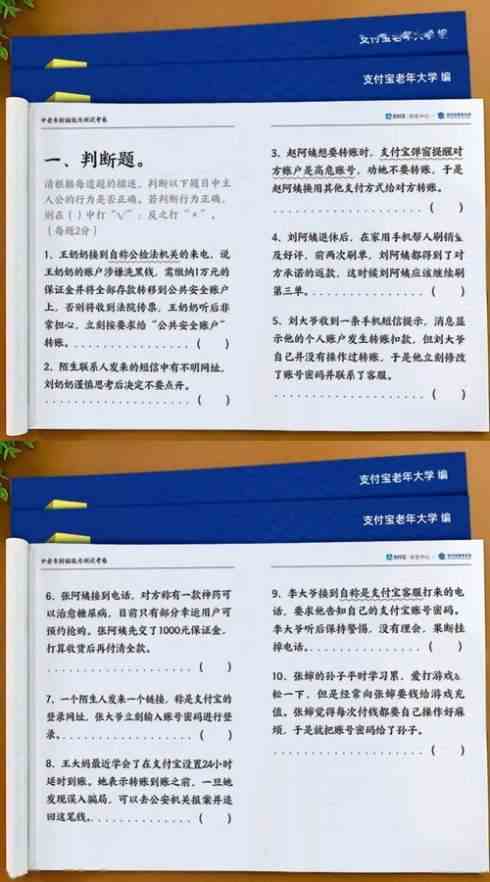 支付宝老年大学 编
支付宝老年大学 编
中老年群体防诈测试考卷
一、判断题。
请根据每道题的描述，判断以下题目中主
人公的行为是否正确。若判断行为正确，
则在（ ）中打“√”；反之打“×”。
（每题2分）
1、王奶奶接到自称公检法机关的来电，说
王奶奶的账户涉嫌洗黑钱，需缴纳1万元的
保证金并将全部存款转移到公共安全账户
上，否则将收到法院传票，王奶奶听后非
常担心，立刻按要求给“公共安全账户”
转账。......................（ ）
2、陌生联系人发来的短信中有不明网址，
刘奶奶谨慎思考后决定不要点开。
......................（ ）
3、赵阿姨想要转账时，支付宝弹窗提醒对
方账户是高危账号，劝她不要转账，于是
赵阿姨换用其他支付方式给对方转账。
......................（ ）
4、刘阿姨退休后，在家用手机帮人刷销量
及好评，前两次刷单，刘阿姨都得到了对
方承诺的返款，这时候刘阿姨应该继续刷
第三单。......................（ ）
5、刘大爷收到一条手机短信提示，消息显
示他的个人账户发生转账扣款，但刘大爷
自己并没有操作过转账，于是他立刻修改
了账号密码并联系了客服。
......................（ ）
支付宝老年大学 编
支付宝老年大学 编
6、张阿姨接到电话，对方称有一款神药可
以治愈糖尿病，目前只有部分幸运用户可
预约抢购。张阿姨先交了1000元保证金，
打算收货后再付清全款。
......................（ ）
7、一个陌生人发来一个链接，称是支付宝的
登录网址，张大爷立刻输入账号密码进行登
录。......................（ ）
8、王大妈最近学会了在支付宝设置24小时
延时到账。她表示转账到账之前，一旦她
发现误入骗局，可以去公安机关报案并追
回这笔钱。......................（ ）
9、李大爷接到自称是支付宝客服打来的电
话，要求他告知自己的支付宝账号密码。
李大爷听后保持警惕，没有理会，果断挂
掉电话。......................（ ）
10、张婶的孙子平时学习累，爱打游戏放
松一下，但是经常向张婶要钱给游戏充
值。张婶觉得每次付钱都要自己操作好麻
烦，于是就把账号密码给了孙子。
......................（ ）